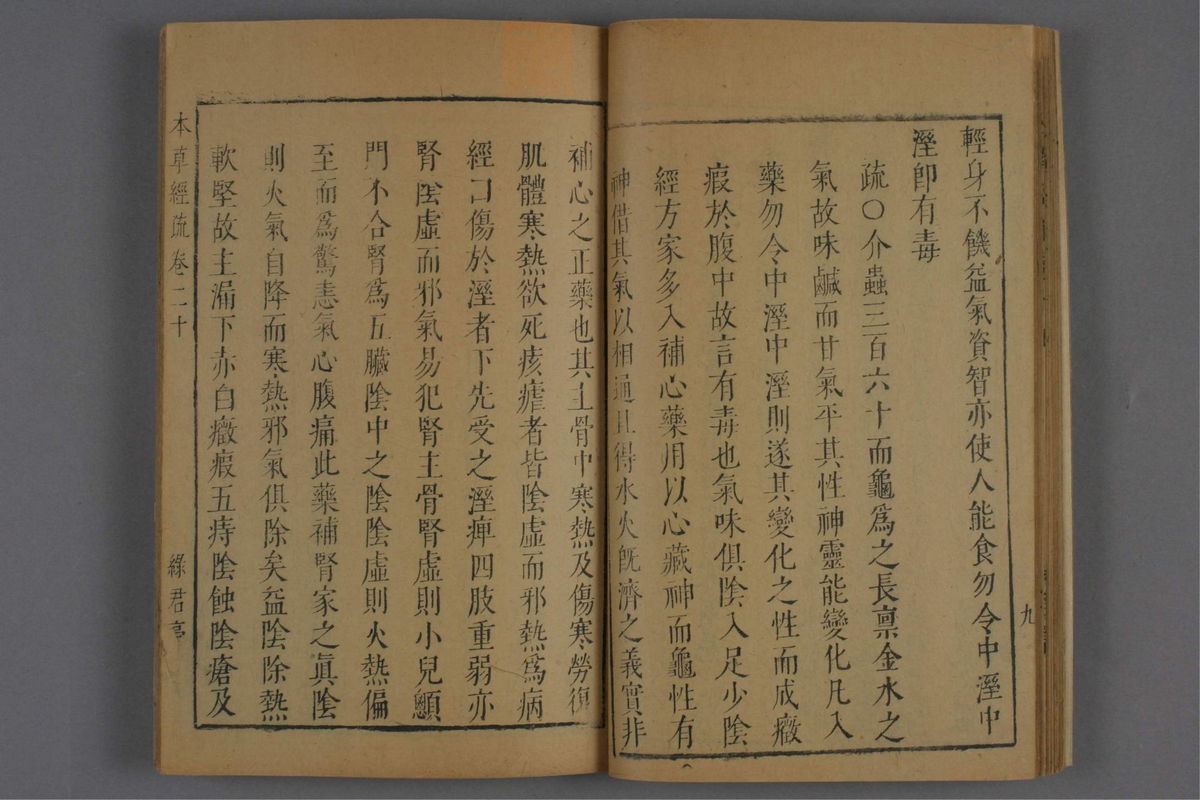 輕身不饑益氣資智亦使人能食勿令中溼中
溼即有毒
疏〇介蟲三百六十而龜爲之長禀金水之
氣故味鹹而甘氣平其性神靈能變化凡入
藥勿令中溼中溼則遂其變化之性而成癥
瘕於腹中故言有毒也氣味俱陰入足少陰
經方家多入補心藥用以心藏神而龜性有
神借其氣以相通且得水火旣濟之義實非
九
補心之正藥也其主骨中寒熱及傷寒勞復
肌體寒熱欲死痎瘧者皆陰虛而邪熱爲病
經曰傷於溼者下先受之溼痺四肢重弱亦
腎陰虛而邪氣易犯腎主骨腎虛則小兒顖
門不合腎爲五臟陰中之陰陰虛則火熱偏
至而爲驚恚氣心腹痛此藥補腎家之眞陰
則火氣自降而寒熱邪氣俱除矣益陰除熱
軟堅故主漏下赤白癥瘕五痔陰蝕陰瘡及
本草經疏卷二十
綠君亭